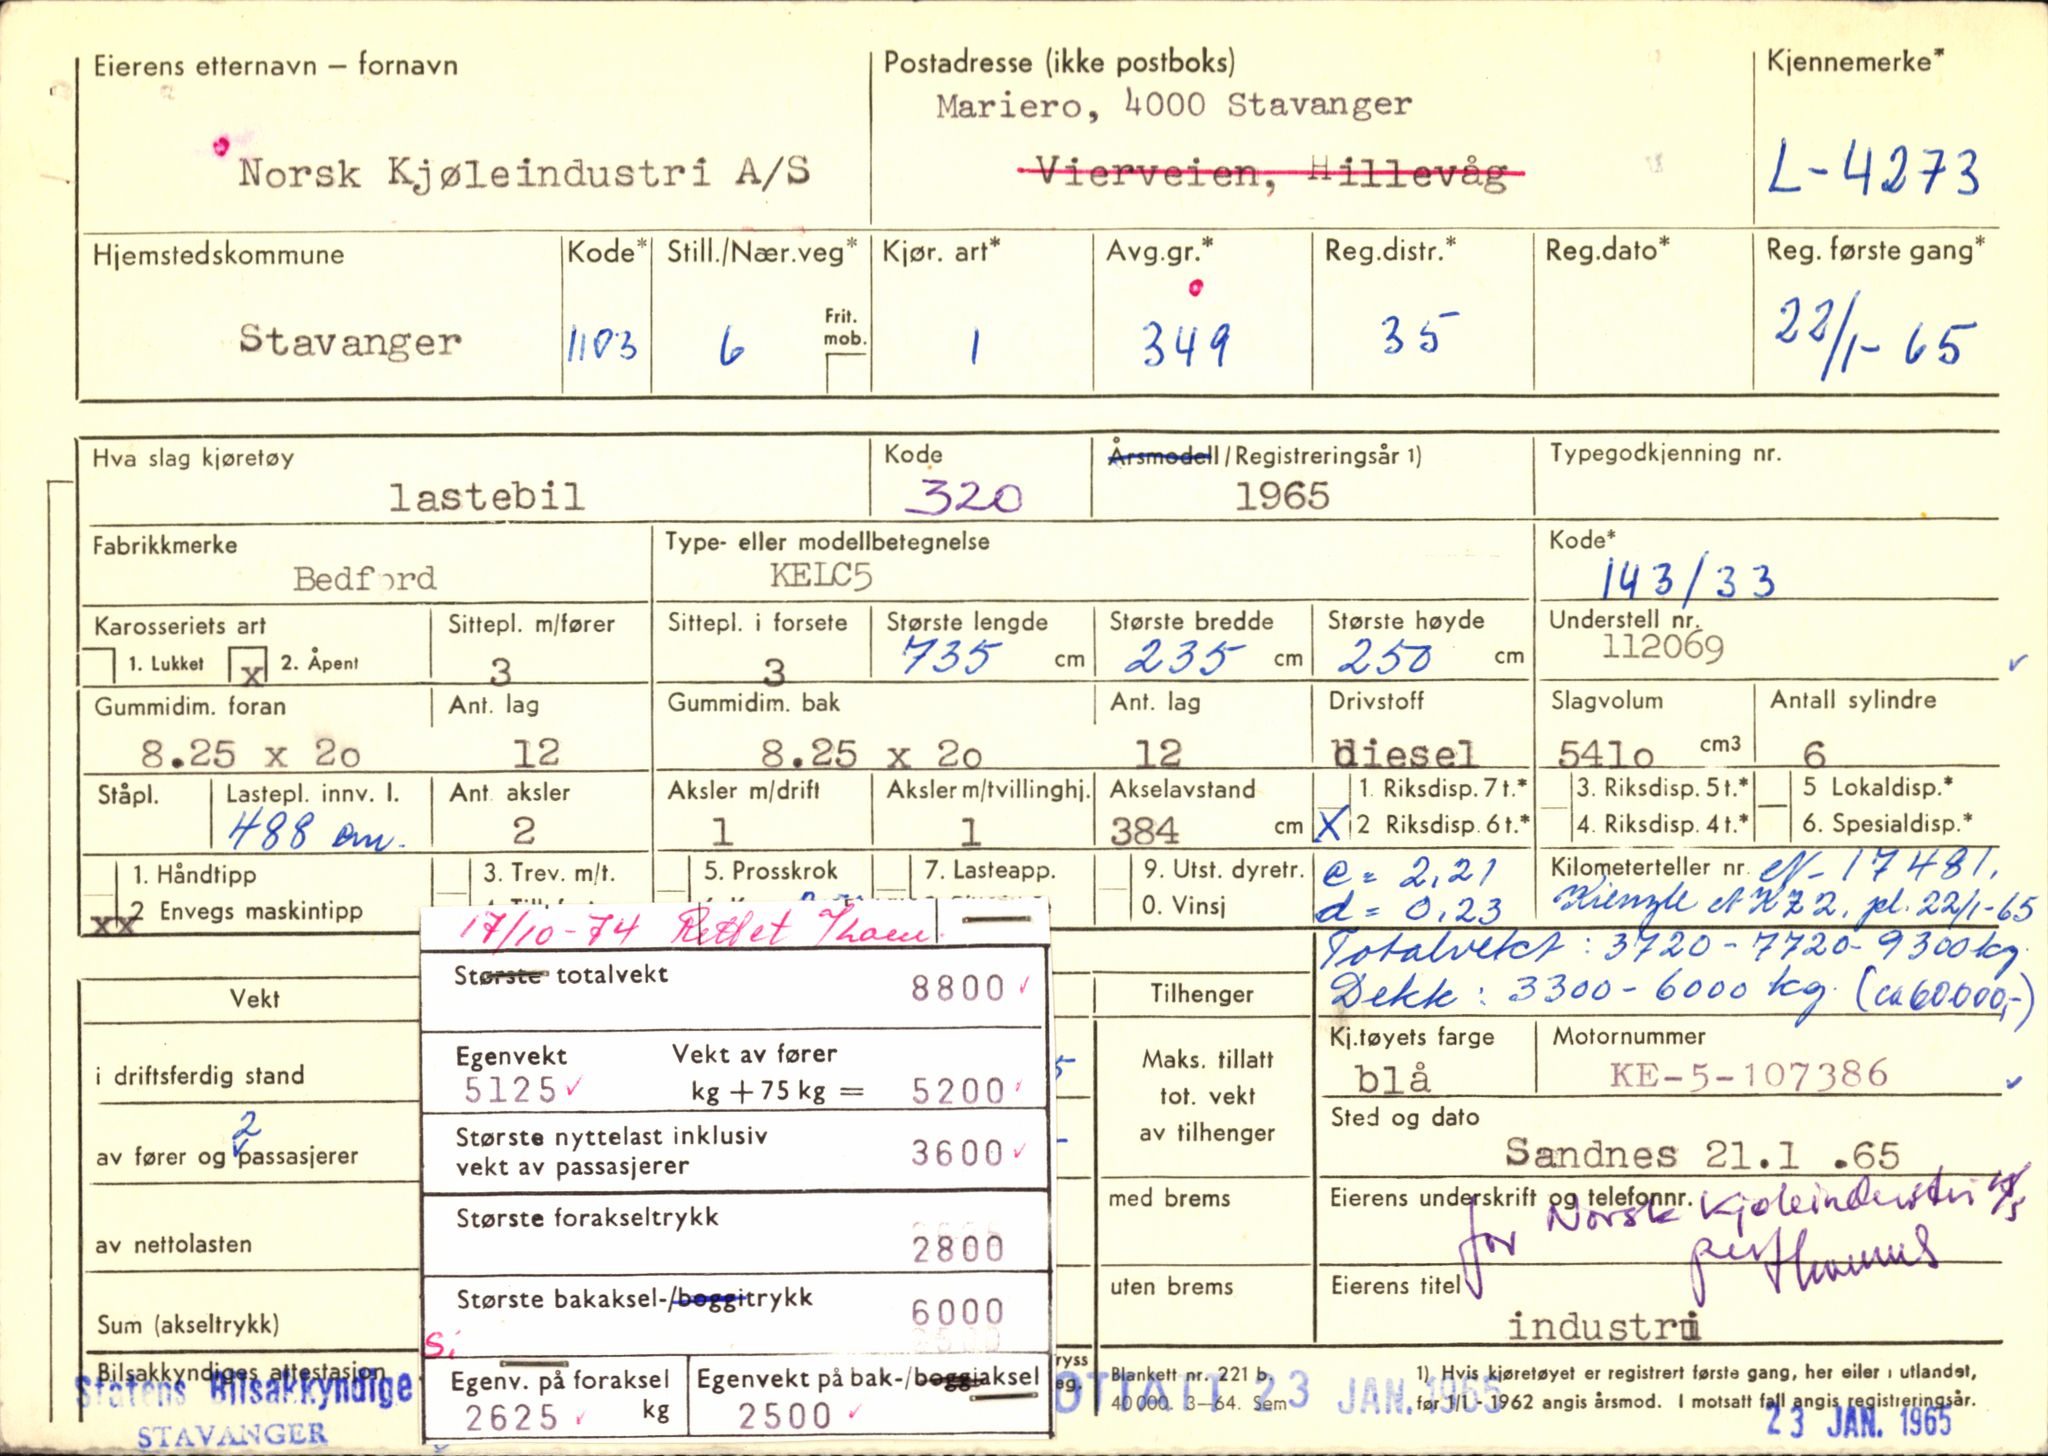 Eierens etternavn – fornavn
Postadresse (ikke postboks)
Kjennemerke*
Mariero, 4000 Stavanger
Norsk Kjøleindustri A/S
Vierveien, Hillevåg
L-4273
Hjemstedskommune
Kode*
Still./Nær.veg*
Kjør. art*
Avg.gr.*
Reg.distr.*
Reg.dato*
Reg. første gang*
Stavanger
1103
6
Frit. mob.
1
349
35
22/1-65
Hva slag kjøretøy
Kode
Årsmodell/Registreringsår 1)
Typegodkjenning nr.
lastebil
320
1965
Fabrikkmerke
Type- eller modellbetegnelse
Kode*
Bedford
KELC5
143/33
Karosseriets art
Sittepl. m/fører
Sittepl. i forsete
Største lengde
Største bredde
Største høyde
Understell nr.
1. Lukket
x
2. Åpent
3
3
735 cm
235 cm
250 cm
112069
Gummidim. foran
Ant. lag
Gummidim. bak
Ant. lag
Drivstoff
Slagvolum
Antall sylindre
8.25 x 2o
12
8.25 x 2o
12
diesel
541o cm3
6
Ståpl.
Lastepl. innv. l.
Ant. aksler
Aksler m/drift
Aksler m/tvillinghj.
Akselavstand
1. Riksdisp. 7 t.*
3. Riksdisp. 5 t.*
5 Lokaldisp.*
488 cm.
2
1
1
384 cm
X 2 Riksdisp. 6 t.*
4. Riksdisp. 4 t.*
6. Spesialdisp.*
1. Håndtipp
3. Trev. m/t.
5. Prosskrok
7. Lasteapp.
9. Utst. dyretr.
e = 2,21
Kilometerteller nr. N-17481.
xx 2 Envegs maskintipp
0. Vinsj
d = 0,23
Kienzle KZ2, pl. 22/1-65
17/10-74 Rettet
Totalvekt : 3720 - 7720 - 9300 kg.
Største totalvekt
8800
Dekk : 3300 - 6000 kg. (ca 60000,-)
Vekt
Tilhenger
Egenvekt
Vekt av fører
Kj.tøyets farge
Motornummer
i driftsferdig stand
5125
kg + 75 kg =
5200
Maks. tillatt
tot. vekt
av tilhenger
blå
KE-5-107386
Sted og dato
2
av fører og passasjerer
Største nyttelast inklusiv
vekt av passasjerer
3600
Sandnes 21.1 .65
med brems
Eierens underskrift og telefonnr.
for Norsk Kjøleindustri A/S
Største forakseltrykk
av nettolasten
2800
uten brems
Eierens titel
Største bakaksel-/boggitrykk
6000
Sum (akseltrykk)
industri
Si
Bilsakkyndiges attestasjon
Statens Bilsakkyndige
STAVANGER
Egenv. på foraksel
2625 kg
Egenvekt på bak-/boggiaksel
2500
ryss
Blankett nr. 221 b.
40 000. 3–64. Sem
OTTATT 23 JAN. 1965
1) Hvis kjøretøyet er registrert første gang, her eller i utlandet,
før 1/1 - 1962 angis årsmod. I motsatt fall angis registreringsår.
23 JAN. 1965